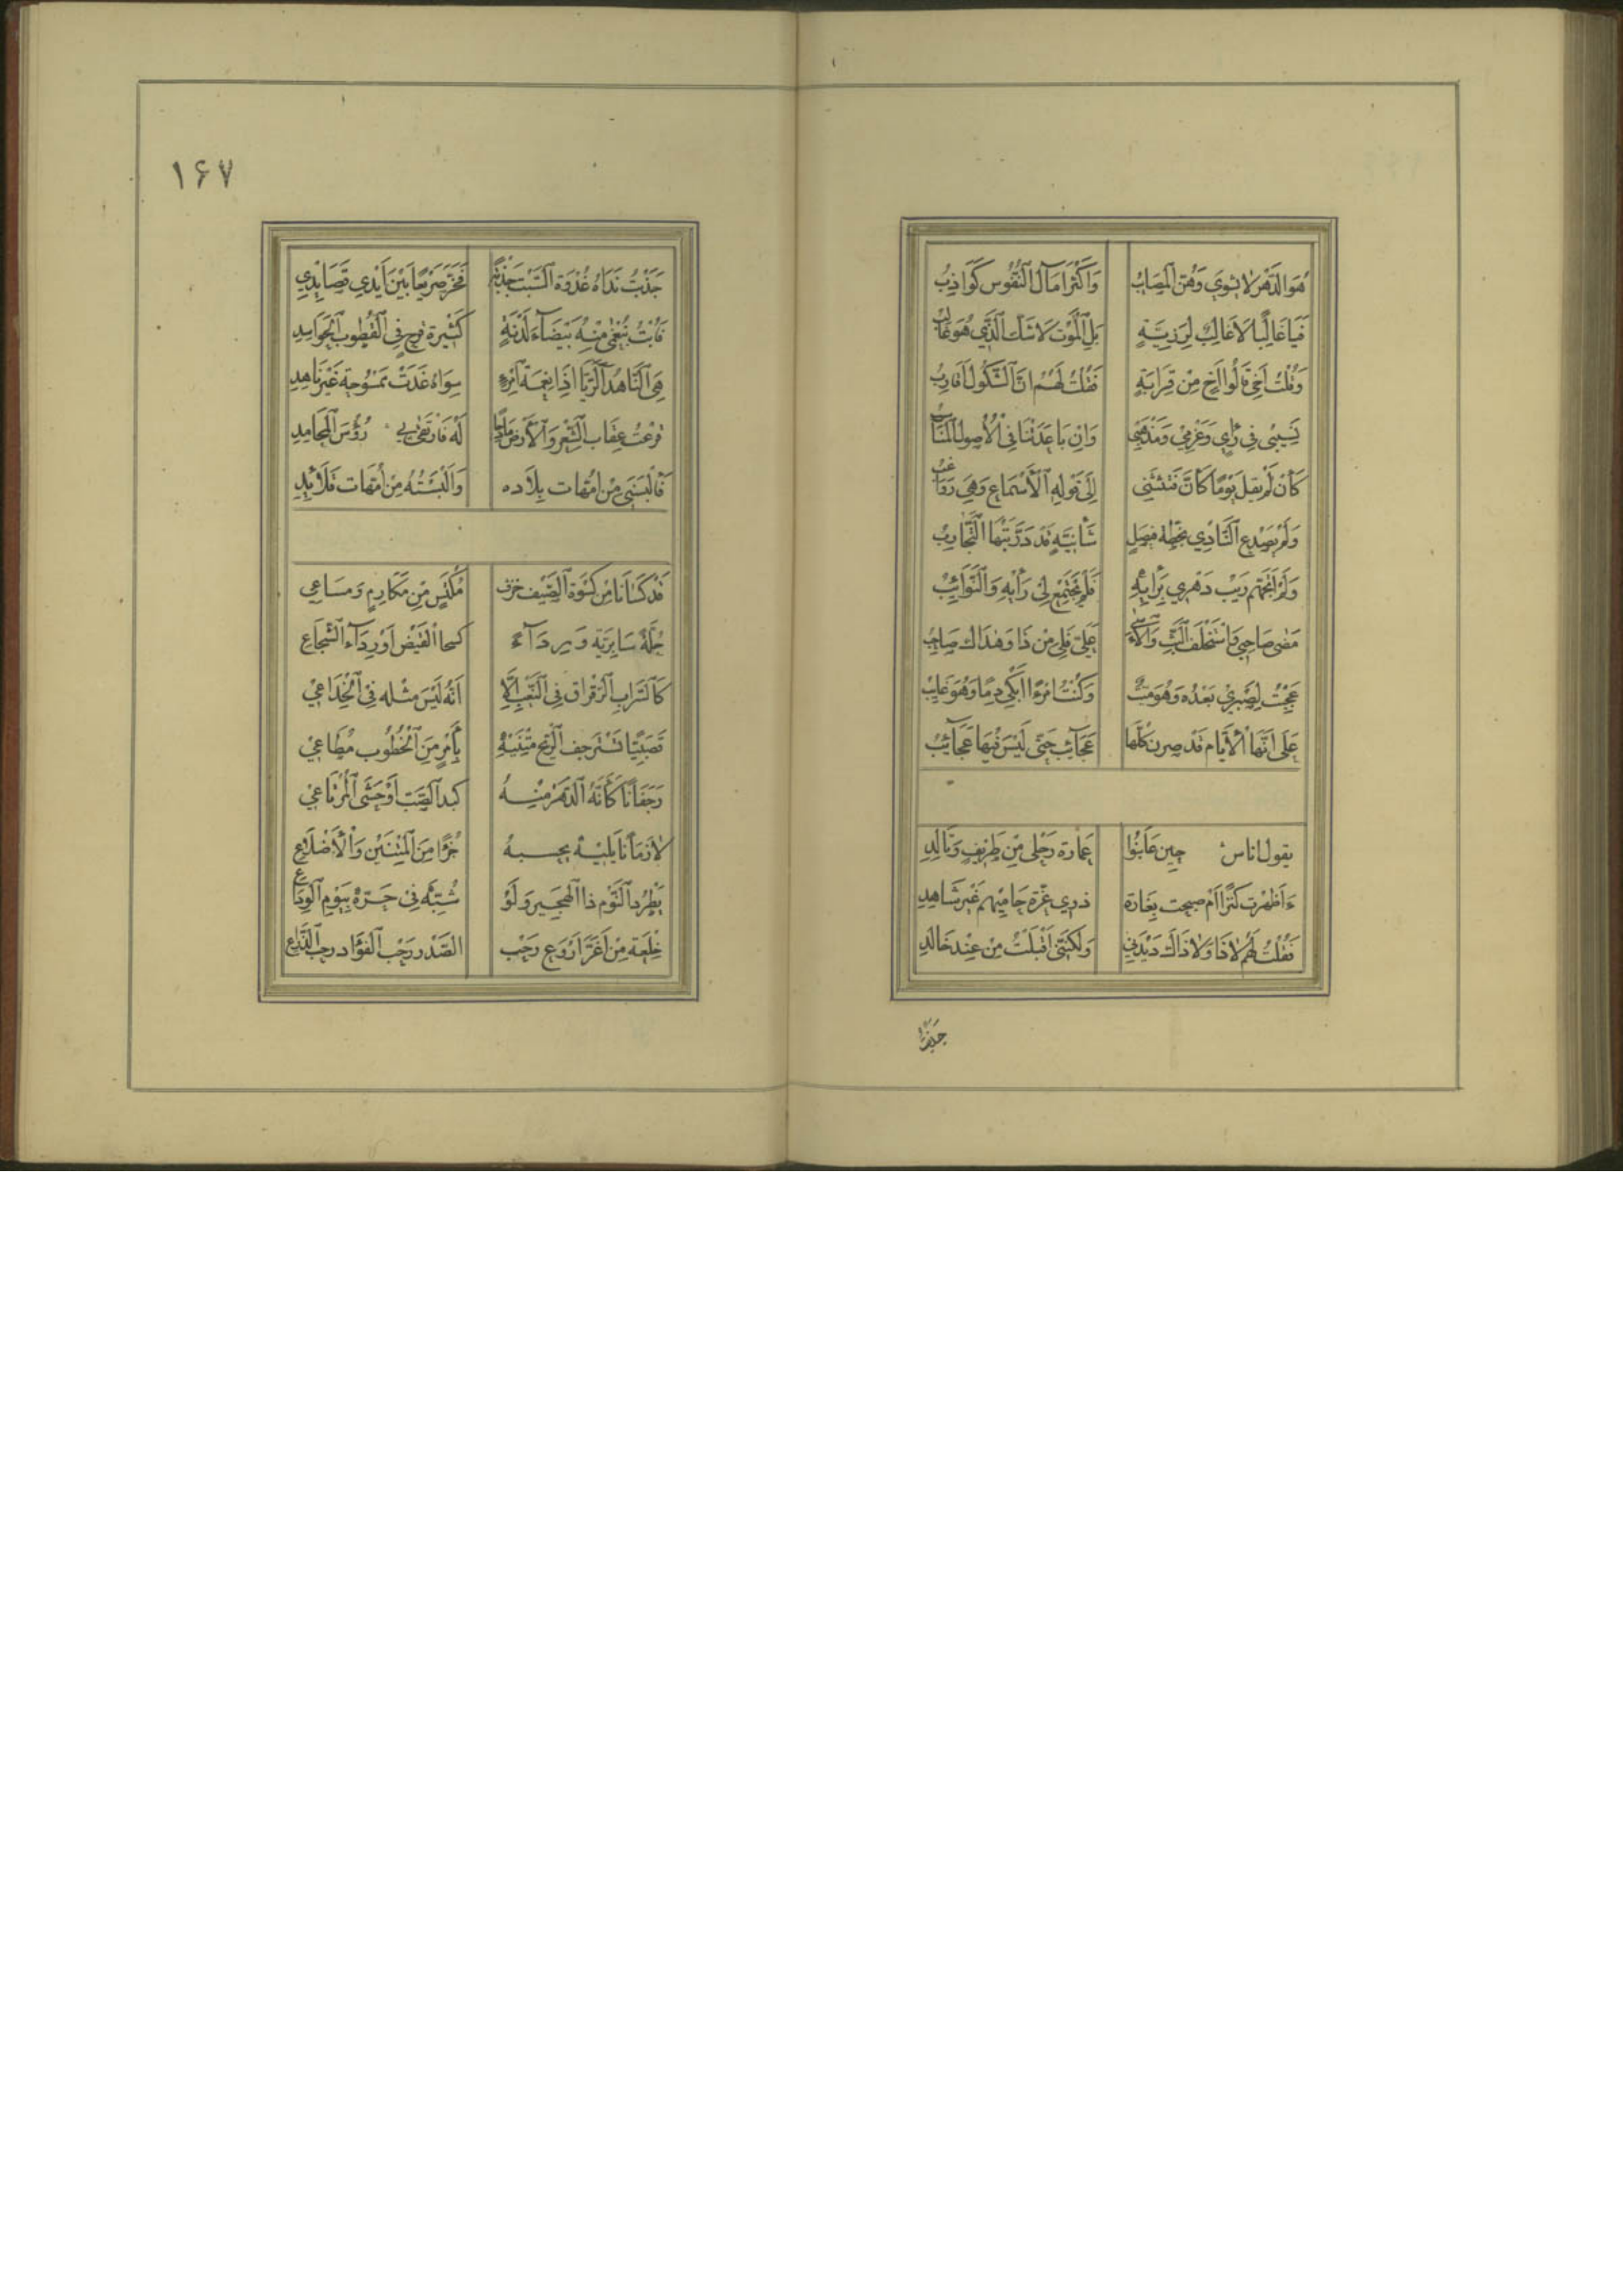 هُوَ الدَّهْرُ لَا يُشْوِي وَهُنَّ المَصَائِبُ وَاَكْثَرُ امَالِ النُّفُوسِ كَوَاذِبُ
فَيَا غَالِبًا لَا غَالِبٌ لِرَزِيَّةٍ بَلِ الْمَوْتُ لَا شَكَّ الَّذِي هُوَ غَالِبُ
وَقُلْتُ اَخِي قَالُوا اَخٌ مِنْ قَرَابَةٍ فَقُلْتُ لَهُمْ اِنَّ الشُّكُولَ اَقَارِبُ
نَسِيبِى فِي رَأْيٍ وَعَزْمِي وَمَذْهَبِي وَاِنْ بَاعَدَتْنَا فِي الْاُصُولِ الْمَنَاسِبُ
كَأَنْ لَمْ يَقُلْ يَوْمًا كَأَنَّ فَتَنْثَنِي اِلَى قَوْلِهِ الْأَسْمَاعُ وَهِيَ رَوَاغِبُ
وَلَمْ يَصْدَعِ النَّادِي بِخُطْبَةٍ فَيْصَلٍ قَدْ دَرَّبَتْهَا التَّجَارِبُ
وَلَمْ اَتَجَهَّمْ رَيْبَ دَهْرِي بِرَأْيِهِ فَلَمْ يَجْتَمِعْ لِي رَأْيُهِ وَالنَّوَائِبُ
مَضَى صَاحِبِي وَاسْتَخْلَفَ الْبَثَّ وَالْأَسَى عَلَيَّ فَلِي مِنْ ذَا وَهَذَاكَ صَاحِبُ
عَجِبْتُ لِصَبْرِي بَعْدَهُ وَهُوَ مَيِّتٌ وَكُنْتُ امْرَءًا اَبْكِي دَمًا وَهُوَ غَائِبُ
عَلَى اَنَّهَا الْاَيَّامُ قَدْ صِرْنَ كُلُّهَا عَجَآئِبَ حَتَّى لَيْسَ فِيهَا عَجَآئِبُ
يقول اناس حِينَ عَايَنُوا عمارة رَحْلِي مِنْ طَرِيفٍ وَتَالِدِ
ءَاَظْهَرْتَ كَنْزًا اَمْ صبحت بِغَارَةٍ ذوي غِرَّة حَامِيهِمْ غَيْرُ شَاهِدِ
فَقُلْتُ لَهُمْ لَا ذَا وَلَا ذَاكَ دَيْدَنِي وَلَكِنَّنِي اَقْبَلْتُ مِنْ عِنْدِ خَالِدِ
جَذَبْتُ
١٦٧
جَذَبْتُ نَدَاهُ غُدْوَةَ السَّبْتِ جَذْبَةً فَخَرَّ صَرِيعًا بَيْنَ اَيْدِي قَصَائِدِي
فَأُبْتُ بِنُعْمَى مِنْهُ بَيْضَآءَ لَدْنَةٍ كَثِيرَة قرح فِي الْقُطُوبِ الْحَوَاسِدِ
هِيَ النَّاهِدُ الرَّيَّا اِذَا نِعْمَة امْرِءٍ سِوَاهُ غَدَتْ مَمْسُوحَة غَيْرَ نَاهِدِ
فَرَعْتُ عِقَابَ الشِّعْرِ وَالْأَرْضِ مَادِحًا لَهُ فَارْتَقَى بِي رُؤُسَ الْمَحَامِدِ
فَأَلْبَسَنِي مِنْ اُمَّهَات تِلَاده وَاَلْبَسْتُهُ مِنْ اُمَّهَات قَلَائِدِي
قَدْ كَسَانَا مِنْ كَسْوَةِ الصَّيْفِ خرق مُكْتَسٍ مِنْ مَكَارِمٍ وَمَسَاعِي
حُلَّةً سَابِرِيَّة وَرِدَآءً كسحا القَيْضِ اَوْ رِدَآءِ الشُّجَاعِ
كَالسَّرَابِ الرَّقْرَاقِ فِي النَّعْتِ اِلَّا اَنَّهُ لَيْسَ مثله فِي الْخِدَاعِي
قَصَبِيًّا تَسْتَرْجِفُ الرِّيحُ مَتْنَيْهِ بِأَمْرٍ مِنَ الْخُطُوبِ مُطَاعِي
رَجَفَانًا كَأَنَّهُ الدَّهْرَ مِنْهُ كبد الصَّبّ اَوْ حَشَى الْمُرْتَاعِي
لَازِمًا مَا يَلِيهِ يحسبهُ جُزْءًا مِنَ الْمَتْنَيْنِ وَالْأَضْلَاعِ
يَطْرُدُ الْيَوْمَ ذَا الْهَجِيرِ وَلَوْ شُبِّهَ فِي حَرِّهِ بِيَوْمِ الْوَدَاعِ
خِلْعَة مِنْ اَغَرَّ اَرْوَعَ رَحْبِ الصَّدْرِ رَحْبِ الفُؤَادِ رحب الذِّرَاعِ